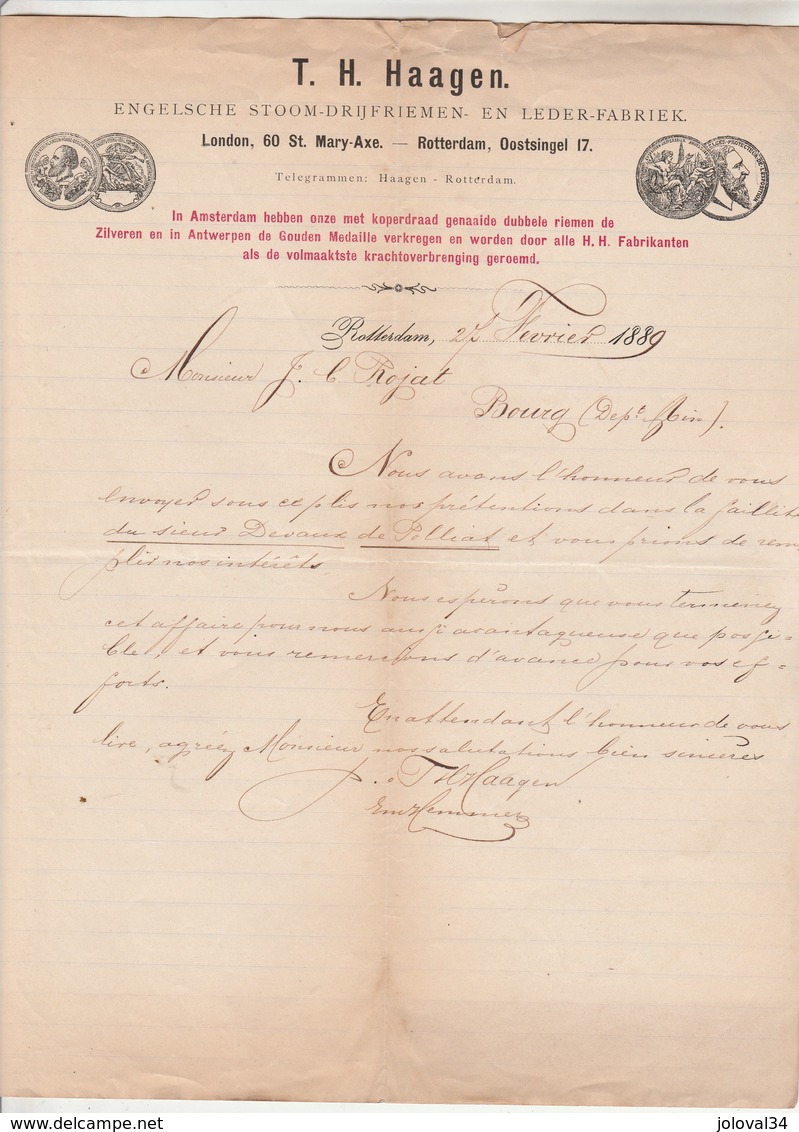 T. H. Haagen.
ENGELSCHE STOOM-DRIJFRIEMEN- EN LEDER-FABRIEK.
London, 60 St. Mary-Axe. — Rotterdam, Oostsingel 17.
Telegrammen: Haagen - Rotterdam.
In Amsterdam hebben onze met koperdraad genaaide dubbele riemen de
Zilveren en in Antwerpen de Gouden Medaille verkregen en worden door alle H. H. Fabrikanten
als de volmaaktste krachtoverbrenging geroemd.
Rotterdam, 27 Fevrier 1889
Monsieur J. C. Rojat
Bourg (Dept. Ain).
Nous avons l'honneur de vous
envoyer sous ce plis nos prétentions dans la faillite
du sieur Devaux de Polliat et vous prions de rem
plir nos intérêts.
Nous espérons que vous terminez
cet affaire pour nous aussi avantaqueuse que possi-
ble, et vous remercions d'avance pour vos ef-
forts.
En attendant l'honneur de vous
lire, agréez Monsieur nos salutations bien sincères
p. o T H Haagen
joloval34